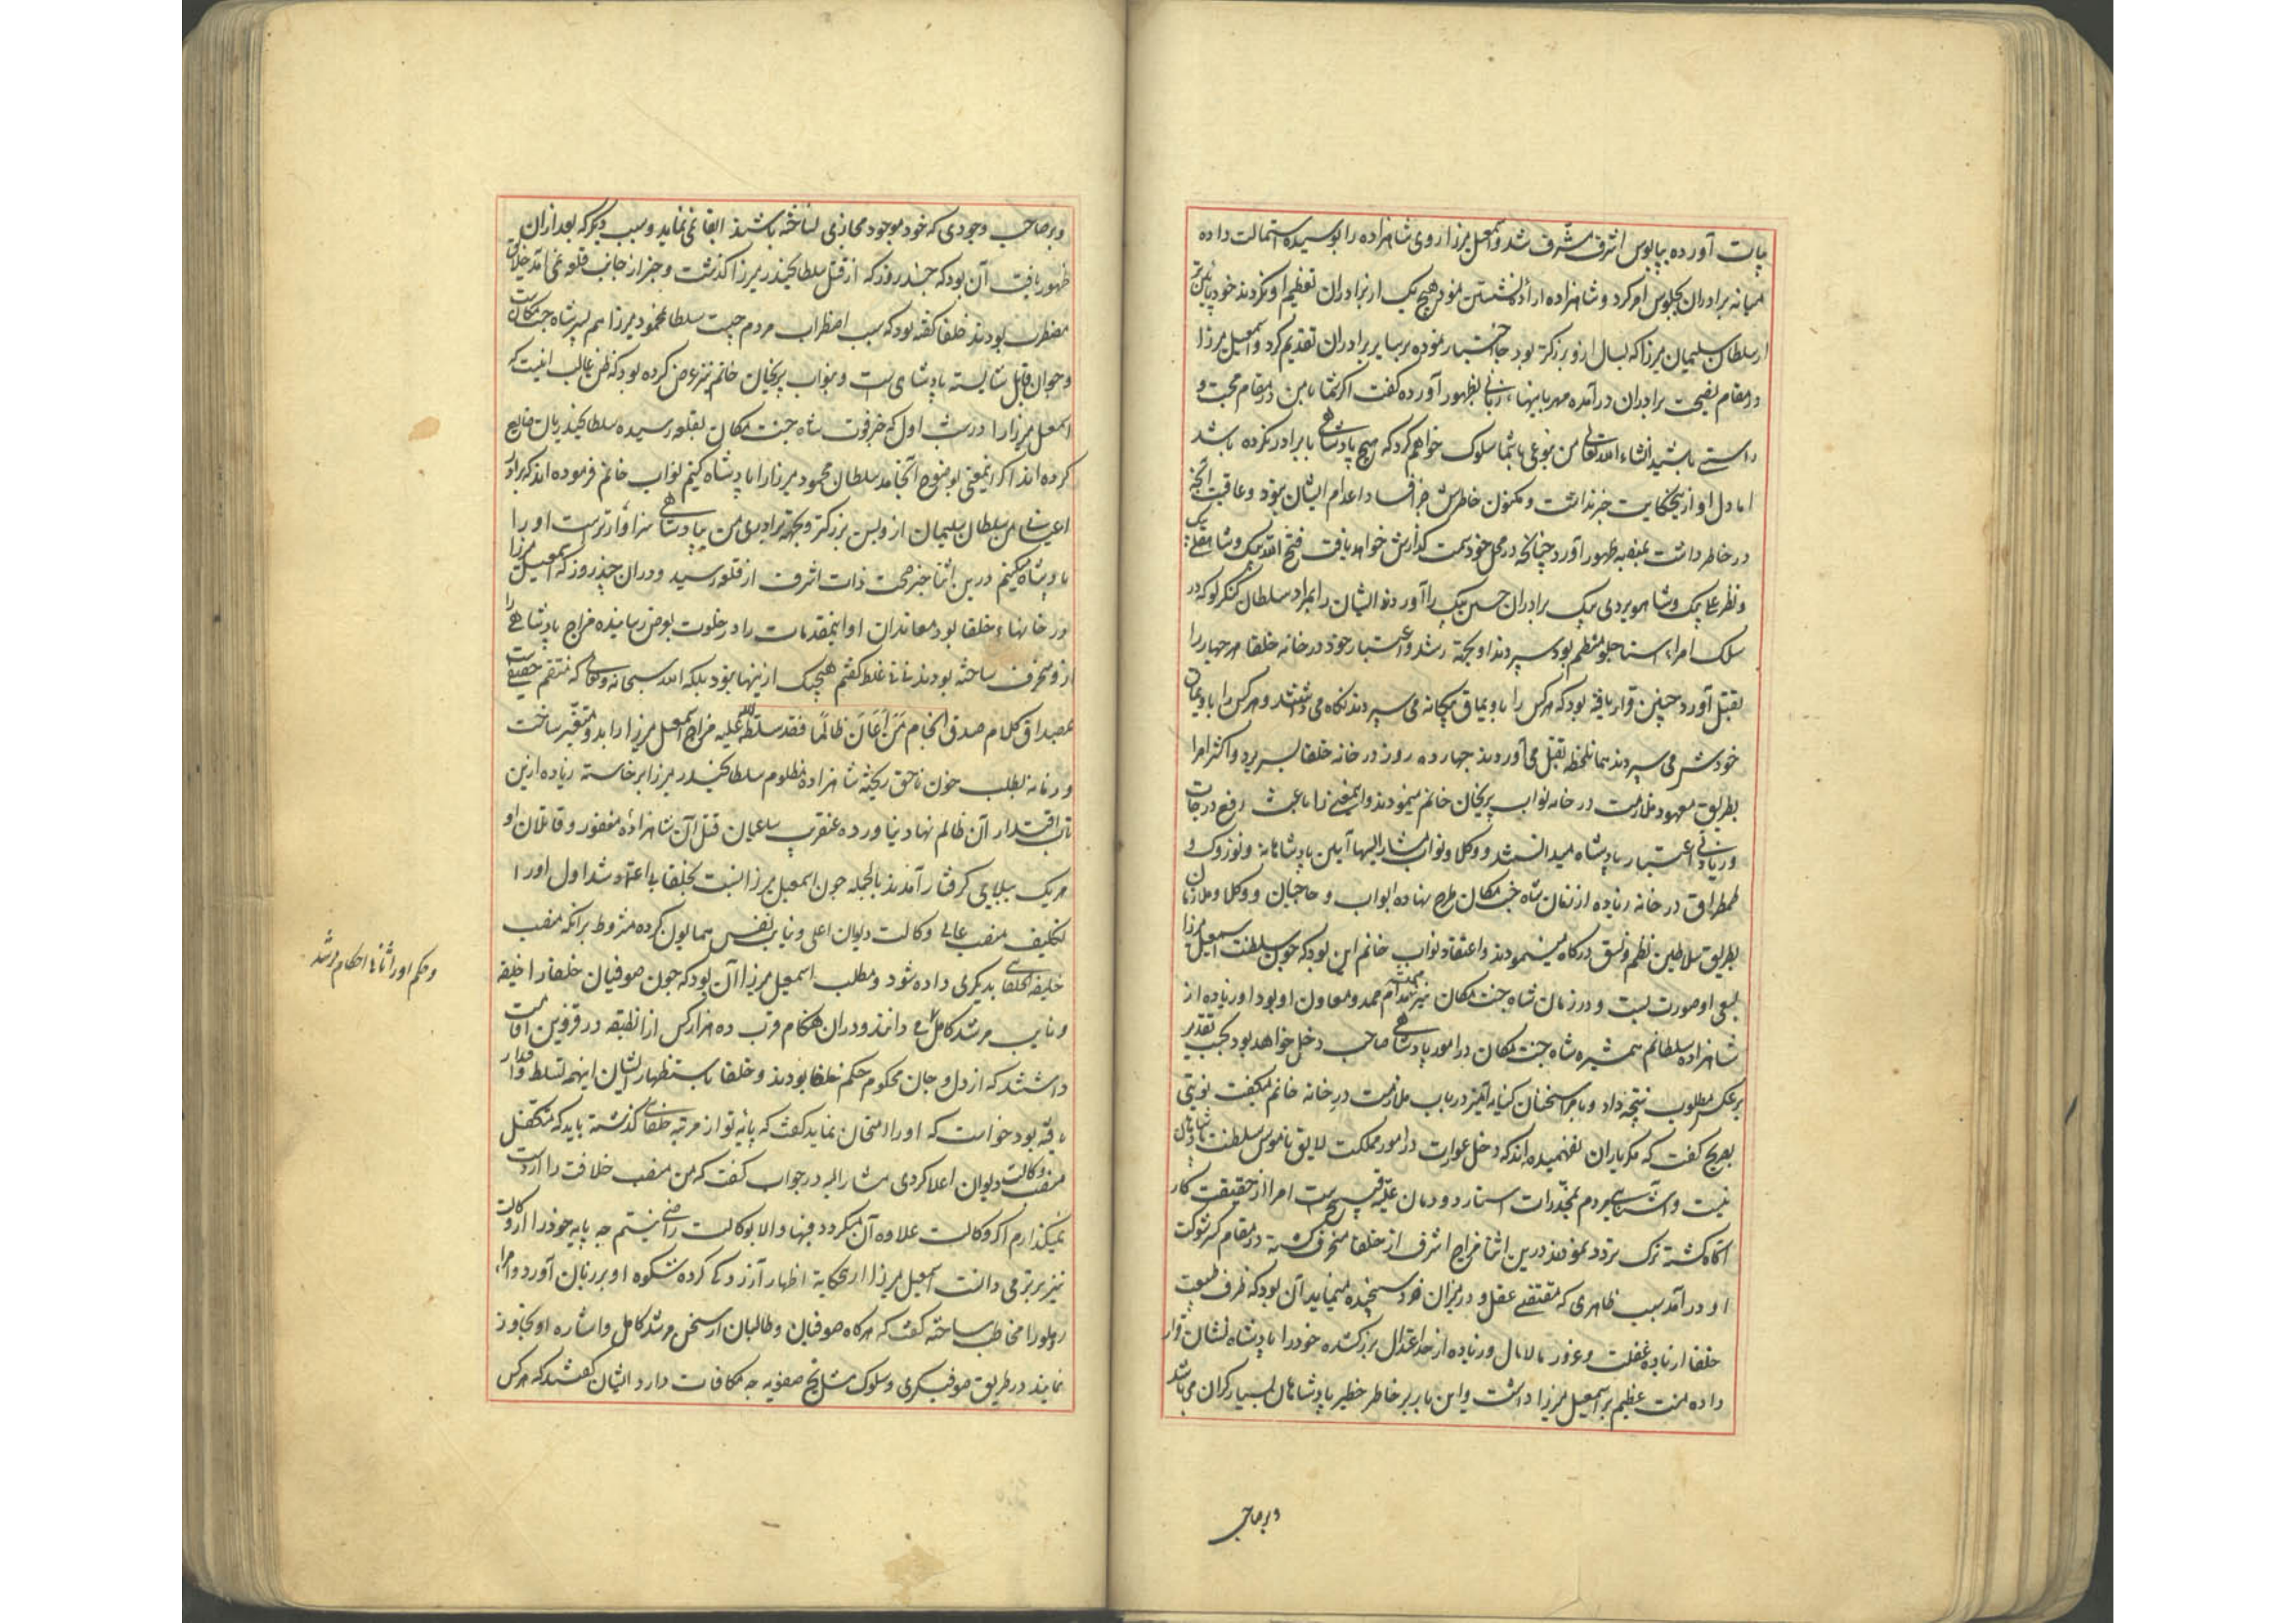 بیات آورده بپابوس اشرف مشرف شد و اسمعیل میرزا روی شاهزاده را بوسیده استمالت داده
میانه برادران بجلوس امر کرد و شاهزاده اراده نشستن نمود هیچ یک از برادران تعظیم او نکردند خود پایین تر
از سلطان سلیمان میرزا که بسال ازو بزرگتر بود جا اختیار نموده بر سایر برادران تقدیم کرد و اسمعیل میرزا
در مقام نصیحت برادران درآمده مهربانیهاء زبانی بظهور آورده گفت اگر شما با من در مقام محبت و
راستی باشید انشاء الله تعالی من بنوعی با شما سلوک خواهم کرد که هیچ پادشاهی با برادر نکرده باشد
اما دل او ازین حکایت خبر نداشت و مکنون خاطرش جز افساد و اعدام ایشان نبود و عاقبت آنچه
در خاطر داشت بمنصه ظهور آورد چنانکه در محل خود سمت گذارش خواهد یافت فتح الله بیک و شاهقلی بیک
و نظر علی بیک و شاهویردی بیک برادران حسین بیک را آوردند ایشان را بمراد سلطان کنکرلو که در
سلک امراء استاجلو منتظم بود سپردند او بجهة رشد و اعتبار خود در خانه خلفا هر چهار را
بقتل آورد چنین قرار یافته بود که هر کس را باویماق بیگانه می سپردند نگاه می داشتند و هر کس را باویماق
خودش می سپردند همان لحظه بقتل می آوردند چهارده روز در خانه خلفا بسر برد و اکثر امرا
بطریق معهود ملازمت در خانه نواب پریخان خانم مینمودند و اینمعنی را باعث رفع درجات
و زیادتی اعتبار پادشاه میدانستند و وکلا و نواب مشار الیها آیین پادشاهانه و توزوک و
طمطراق در خانه زیاده از زمان شاه جنت مکان طرح نهاده ابواب و حاجبان و وکلا و ملازمان
بطریق سلاطین نظم و نسق درگاه مینمودند و اعتقاد نواب خانم این بود که چون سلطنت اسمعیل میرزا
بسعی او صورت بست و در زمان شاه جنت مکان نیز ممد و معاون او بود او زیاده از
شاهزاده سلطانم همشیره شاه جنت مکان در امور پادشاهی صاحب دخل خواهد بود بحسب تقدیر
بر عکس مطلوب نتیجه داد و با امرا سخنان کنایه آمیز در باب ملازمت در خانه خانم میگفت نوبتی
بصریح گفت که مگر یاران نفهمیده اند که دخل عورات در امور مملکت لایق ناموس سلطنت پادشاهان
نیست و آشنایی مردم بمخدرات استار دودمان علیه قبیح است امرا از حقیقت کار
آگاه گشته ترک تردد نمودند درین اثنا مزاج اشرف از خلفا منحرف گشته در مقام کسر شوکت
او درآمد سبب ظاهری که مقتضی عقل و در میزان خرد سنجیده مینماید آن بود که ظرف طبیعت
خلفا از باده غفلت و غرور مالامال و زیاده از حد اعتدال بزرگ شده خود را پادشاه نشان قرار
داده منت عظیم بر اسمعیل میرزا داشت و این بار بر خاطر خطیر پادشاهان بسیار گران می باشد
و بر صاحب
و بر صاحب وجودی که خود موجود مجازی ساخته باشند ابقا نمی نماید و سبب دیگر که بعد از آن
ظهور یافت آن بود که چند روز که از قتل سلطان حیدر میرزا گذشت و خبر از جانب قلعه نمی آمد خلایق
مضطرب بودند خلفا گفته بود که سبب اضطراب مردم چیست سلطان محمود میرزا هم پسر شاه جنت مکانست
و جوان قابل شایسته پادشاهی است و بنواب پریخان خانم نیز عرض کرده بود که ظن غالب اینست که
اسمعیل میرزا را در شب اول که خبر فوت شاه جنت مکان بقلعه رسیده سلطان حیدریان ضایع
کرده اند اگر اینمعنی بوضوح انجامد سلطان محمود میرزا را پادشاه کنیم نواب خانم فرموده اند که برادر
اعیانی من سلطان سلیمان ازو بسن بزرگتر و بجهة برادری من بپادشاهی سزاوارترست او را
پادشاه میکنیم درین اثنا خبر صحت ذات اشرف از قلعه رسید و در آن چند روز که اسمعیل میرزا
در خانهاء خلفا بود معاندان او اینمقدمات را در خلوت بعرض رسانیده مزاج پادشاهی را
ازو منحرف ساخته بودند نی نی غلط گفتم هیچیک ازینها نبود بلکه الله سبحانه و تعالی که منتقم حقیقیست
بمصداق کلام صدق انجام مَن اَعَانَ ظالمًا فقد سلطه الله علیه مزاج اسمعیل میرزا را بدو متغیر ساخت
و زمانه بطلب خون ناحق ریخته شاهزاده مظلوم سلطان حیدر میرزا برخاسته زیاده ازین
تاب اقتدار آن ظالم نهاد نیاورده عنقریب ساعیان قتل آن شاهزاده مغفور و قاتلان او
هر یک ببلایی گرفتار آمدند بالجمله چون اسمعیل میرزا نسبت بخلفا بی اعتماد شد اول او را
تکلیف منصب عالی وکالت دیوان اعلی و نیابت نفس همایون کرده مشروط بر آنکه منصب
خلیفة الخلفایی بدیگری داده شود و مطلب اسمعیل میرزا آن بود که چون صوفیان خلفا را خلیفه
و نایب مرشد کامل می دانند و در آن هنگام قرب ده هزار کس از آن طبقه در قزوین اقامت
داشتند که از دل و جان محکوم حکم خلفا بودند و خلفا باستظهار ایشان اینهمه تسلط و اقتدار
یافته بود خواست که او را امتحان نماید گفت که پایه تو از مرتبه خلفایی گذشته باید که متکفل
منصب وکالت دیوان اعلا گردی مشار الیه در جواب گفت که من منصب خلافت را از دست
نمیگذارم اگر وکالت علاوه آن میگردد فبها و الا بوکالت راضی نیستم چه پایه خود را از وکالت
نیز برتر می دانست اسمعیل میرزا ازین حکایة اظهار آزردگی کرده شکوه او بر زبان آورد و امراء
روملو را مخاطب ساخته گفت که هر گاه صوفیان و طالبان از سخن مرشد کامل و اشاره او تجاوز
نمایند در طریق صوفیگری و سلوک مشایخ صفویه چه مکافات دارد ایشان گفتند که هر کس